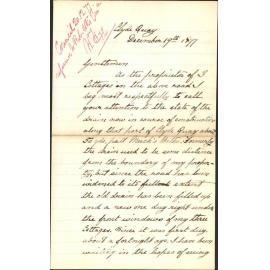 Clyde Quay
December 19th 1877
Gentlemen
As the proprietor of 3
Cottages in the above road I
beg most respectfully to call
your attention to the state of the
drain now in course of construction
along that part of Clyde Quay about
past
the drain used to be some distance
from the boundary of my proper-
ty, but since the road has been
widened to its full extent
the old drain has been filled up
and a new one dug right under
the front windows of my three
Cottages. Since it was first dug,
about a fortnight ago I have been
waiting in the hopes of seeing